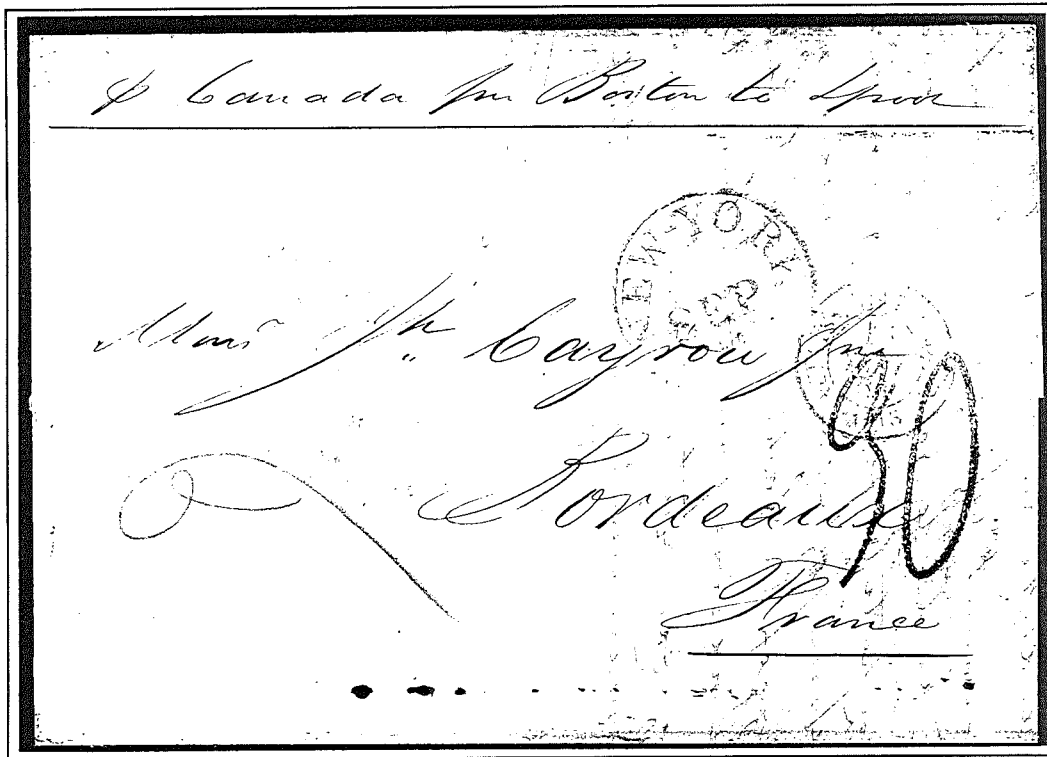 ₱ Canada fm Boston to Lpool
NEW-YORK
SEP
Monsr Jh Cayrou Jne
30
Bordeaux
France